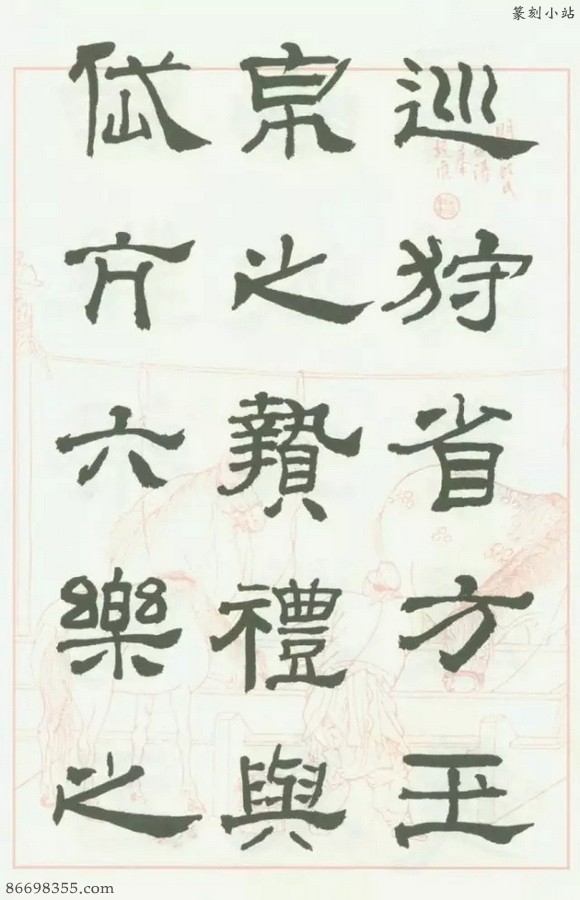 篆刻小站
巡狩省方玉
帛之贄禮與
岱亢六樂之
86698355.com